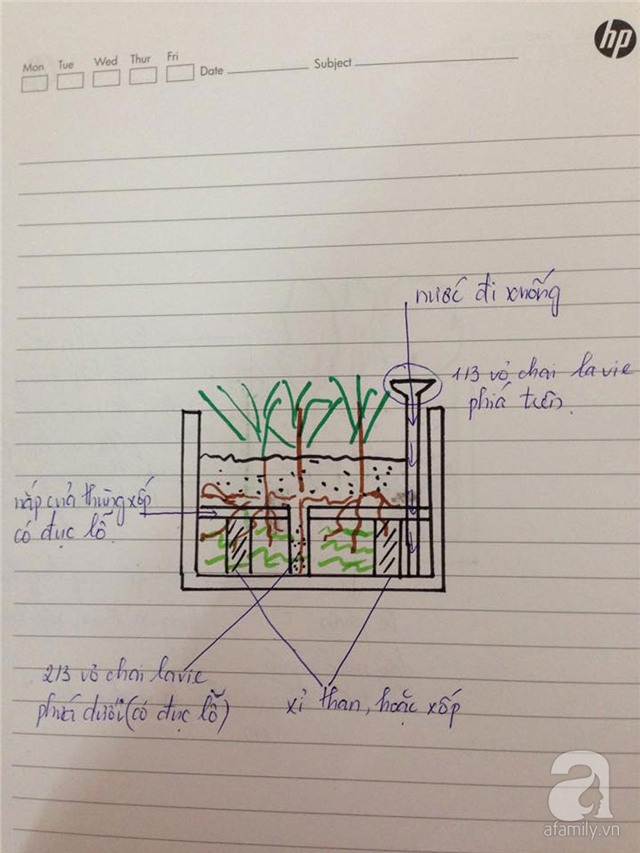 hp
Mon Tue Wed Thur Fri
Date Subject
nước đi xuống
1/3 vỏ chai lavie
phiá trên.
nắp cuả thùng xốp
có đục lỗ.
2/3 vỏ chai lavie
phiá dưới (có đục lỗ)
xỉ than, hoặc xốp
a
afamily.vn